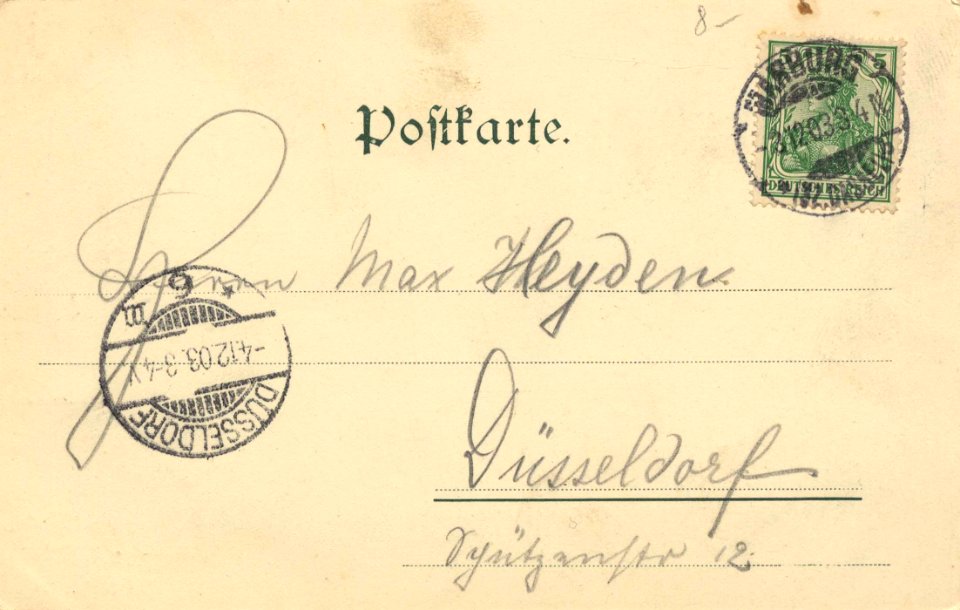 8-
5
DEUTSCHES REICH
MARBURG
-3.12.03.3-4N
Postkarte.
Herrn Max Heyden
6
III
-4.12.03.3-4V
DÜSSELDORF
Düsseldorf
Schützenstr 12.